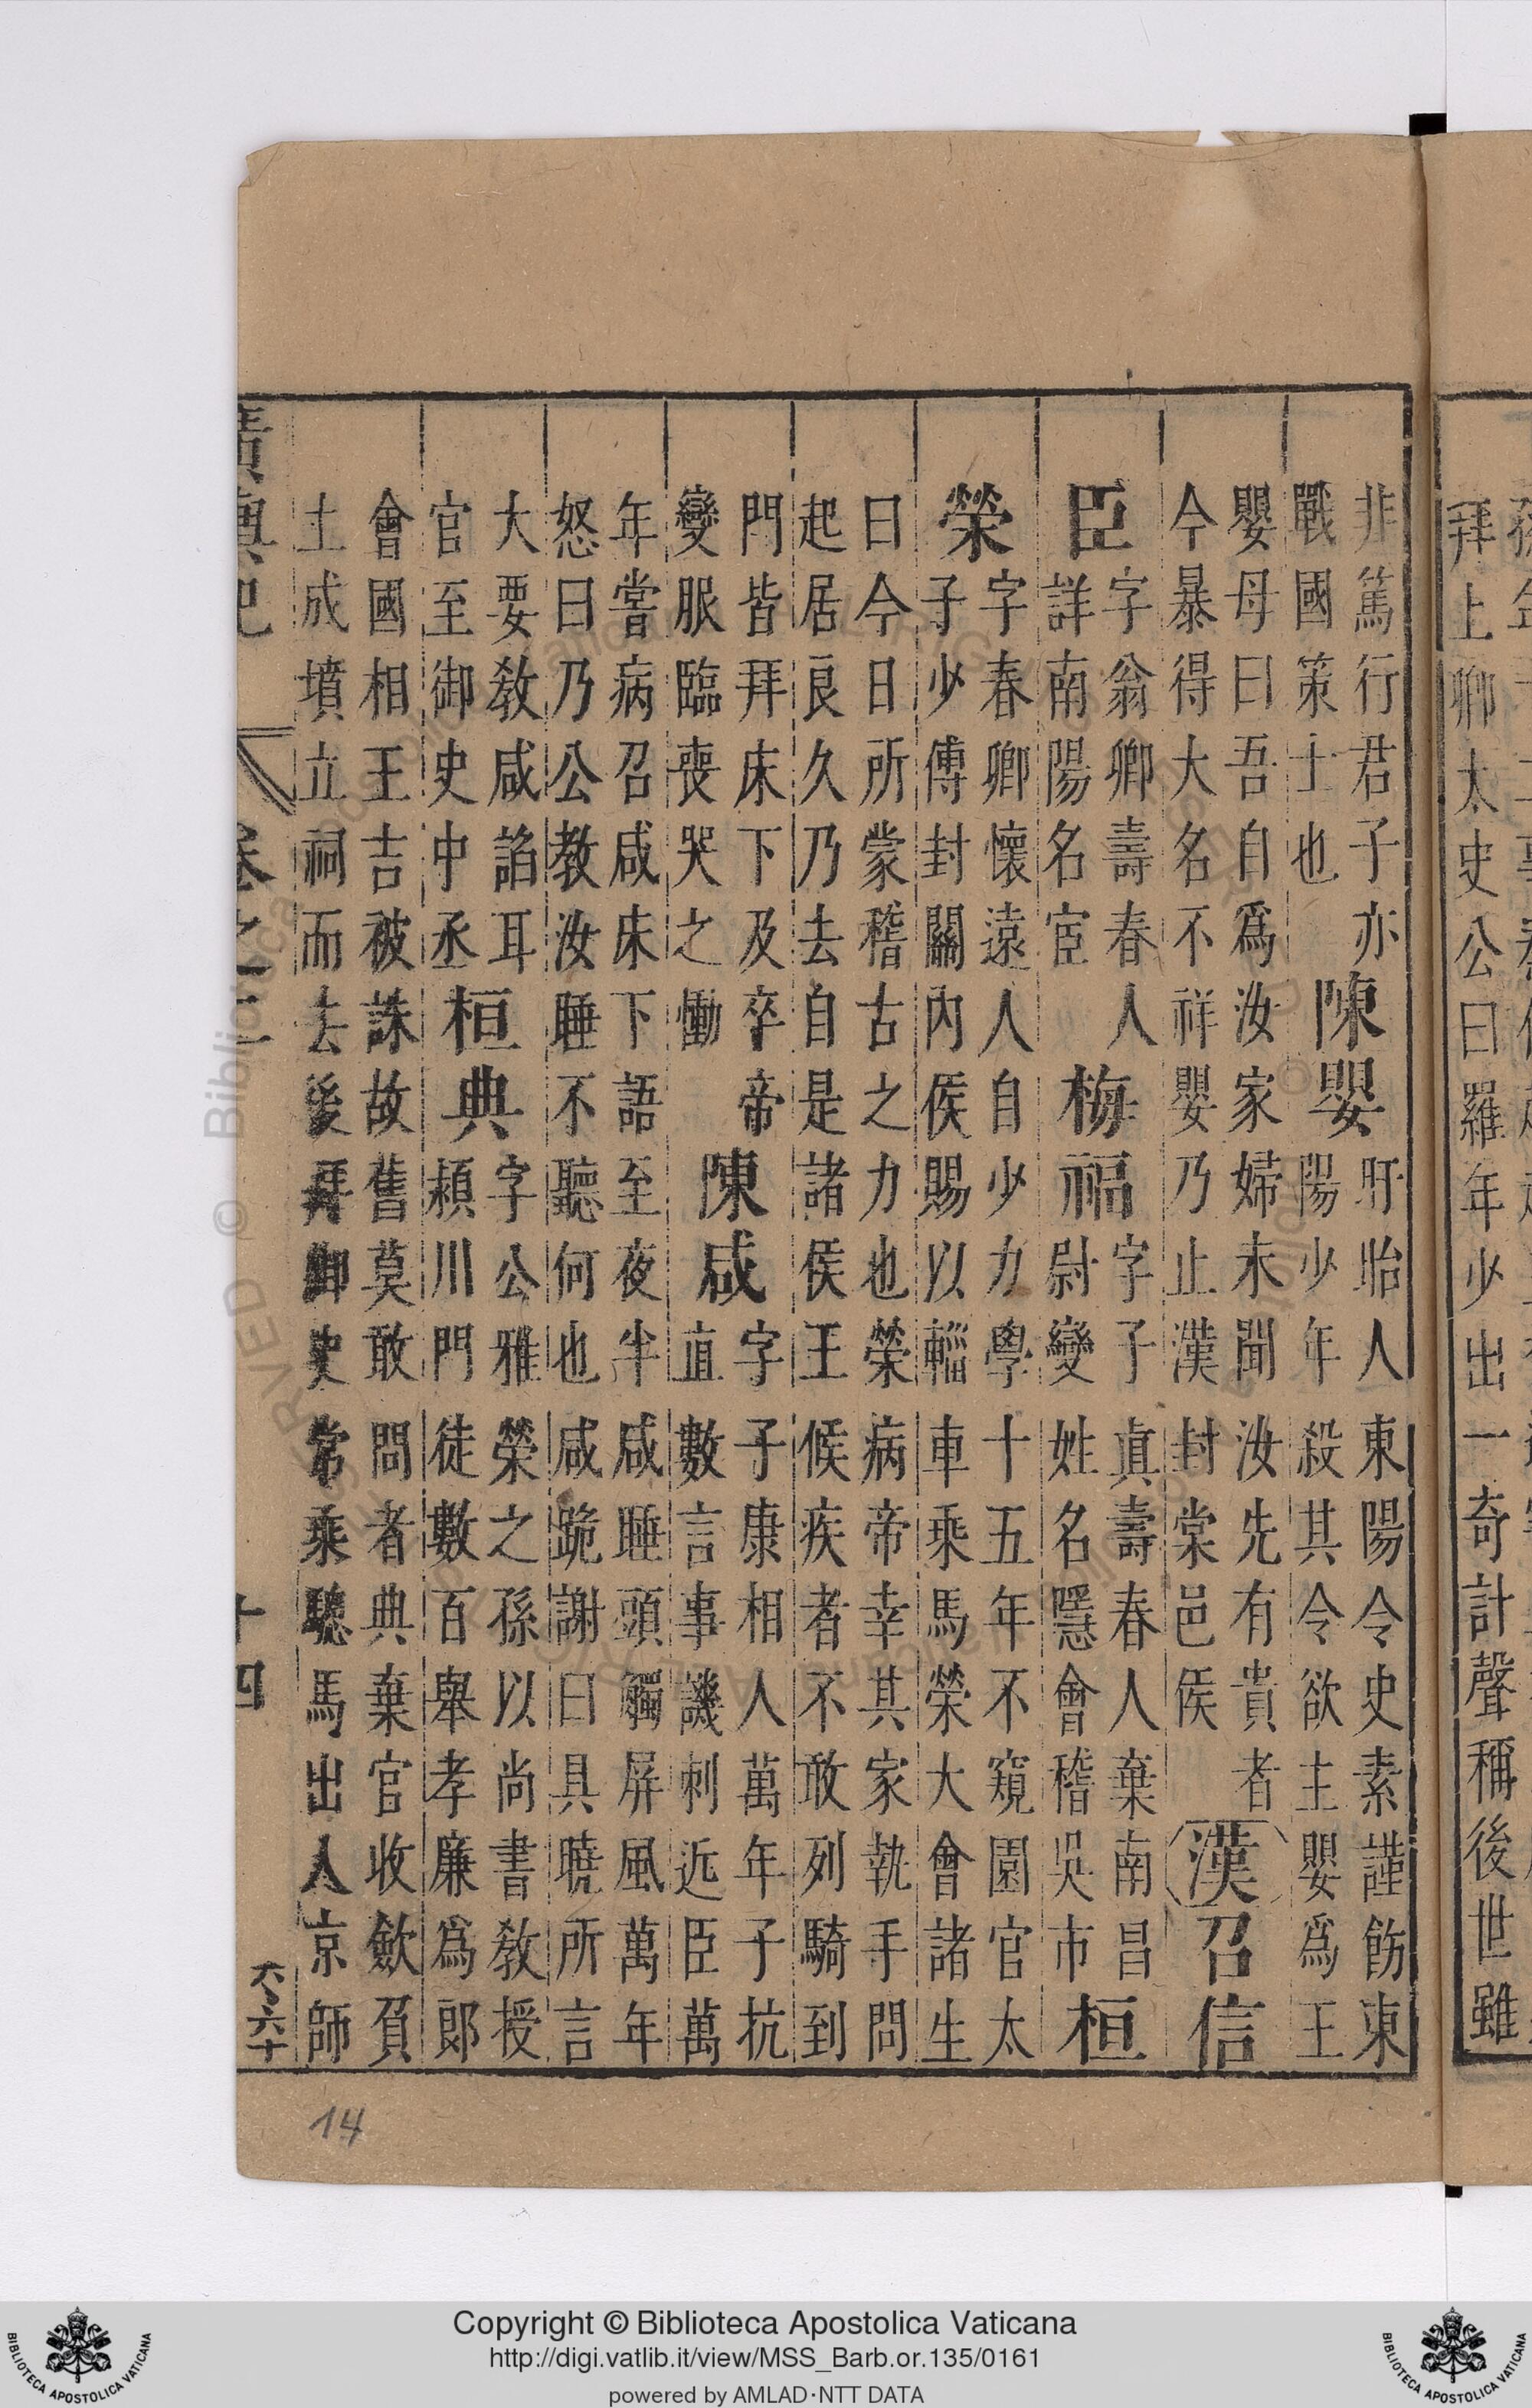 拜上卿太史公曰羅年少出一奇計聲稱後世雖
非篤行君子亦
戰國策士也
陳嬰
盱眙人東陽令史素謹飭東
陽少年殺其令欲主嬰爲王
嬰母曰吾自爲汝家婦未聞汝先有貴者
今暴得大名不祥嬰乃止漢封棠邑侯
漢召信
臣
字翁卿壽春人
詳南陽名宦
梅福
字子眞壽春人棄南昌
尉變姓名隱會稽吳市
桓
榮
字春卿懷遠人自少力學十五年不窺園官太
子少傅封關內侯賜以輜車乘馬榮大會諸生
曰今日所蒙稽古之力也榮病帝幸其家執手問
起居良久乃去自是諸侯王候疾者不敢列騎到
門皆拜床下及卒帝
變服臨喪哭之慟
陳咸
字子康相人萬年子抗
直數言事譏刺近臣萬
年嘗病召咸床下語至夜半咸睡頭觸屏風萬年
怒曰乃公教汝睡不聽何也咸跪謝曰具曉所言
大要敎咸諂耳
官至御史中丞
桓典
字公雅榮之孫以尚書敎授
潁川門徒數百舉孝廉爲郞
會國相王吉被誅故舊莫敢問者典棄官收歛負
土成墳立祠而去後拜御史常乘驄馬出入京師
廣輿記
卷之二
十四
六十
14
Copyright © Biblioteca Apostolica Vaticana
http://digi.vatlib.it/view/MSS_Barb.or.135/0161
powered by AMLAD·NTT DATA
BIBLIOTECA APOSTOLICA VATICANA
BIBLIOTECA APOSTOLICA VATICANA